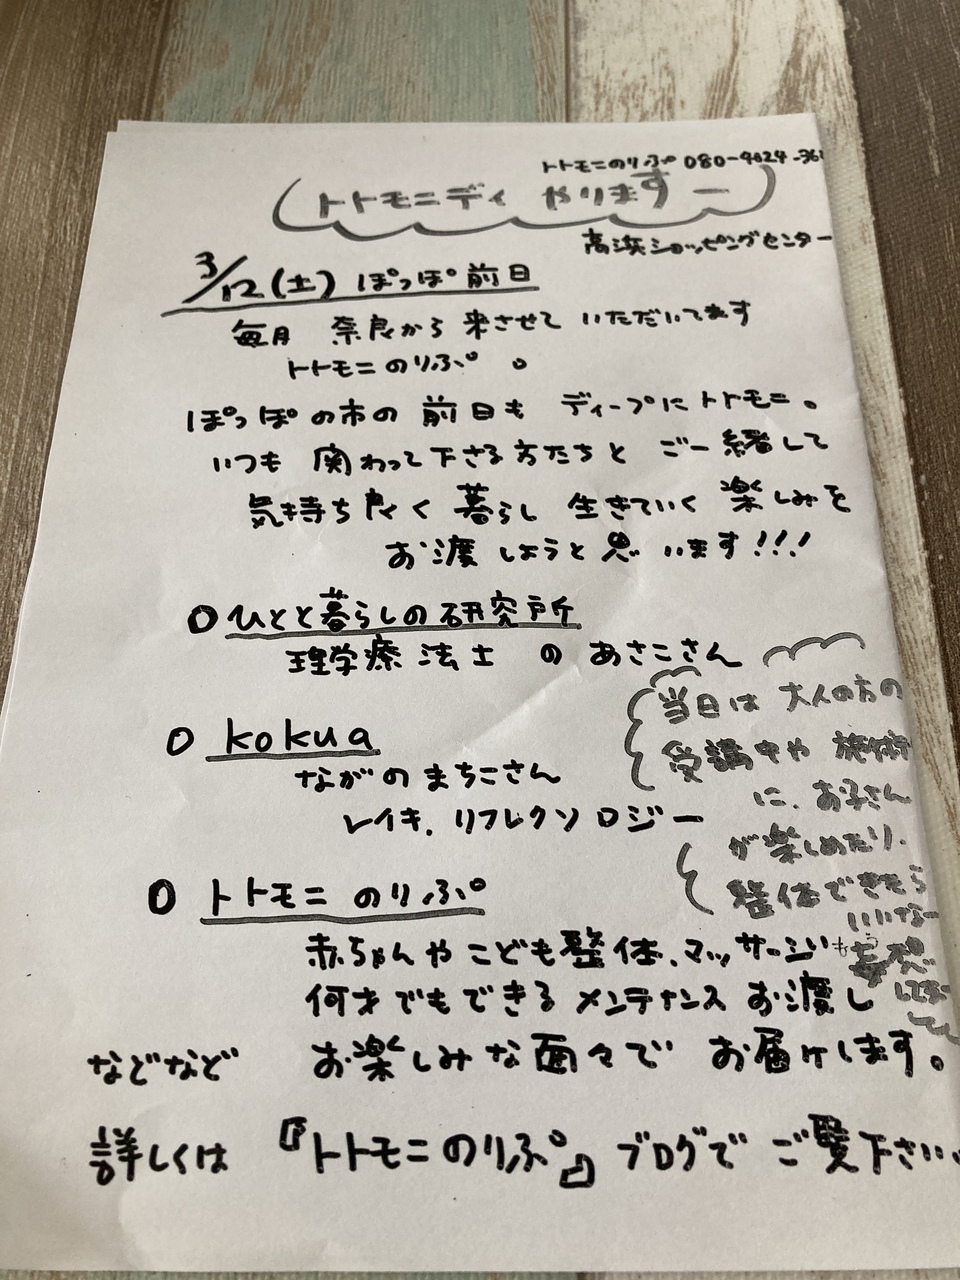 トトモニのりぷ 080-4024-36
トトモニディ やりますー
高浜ショッピングセンター
3/12(土) ぽっぽ前日
毎月 奈良から 来させて いただいてます
トトモニのりぷ 。
ぽっぽの市の 前日も ディープにトトモニ。
いつも 関わって下さる方たちと ご一緒して
気持ち良く 暮らし 生きていく 楽しみを
お渡ししようと思います!!!
○ひとと暮らしの研究所
理学療法士 の あさこさん
○ kokua
ながの まちこさん
レイキ、リフレクソロジー
当日は 大人の方の
受講中や 施術
に、お子さん
が楽しめたり、
整体できたら
いいなー
も
妄想
して
○ トトモニ のりぷ
赤ちゃんや こども整体、マッサージ
何才でもできる メンテナンス お渡し
などなど お楽しみな面々で お届けします。
詳しくは 『トトモニのりぷ』 ブログで ご覧下さい